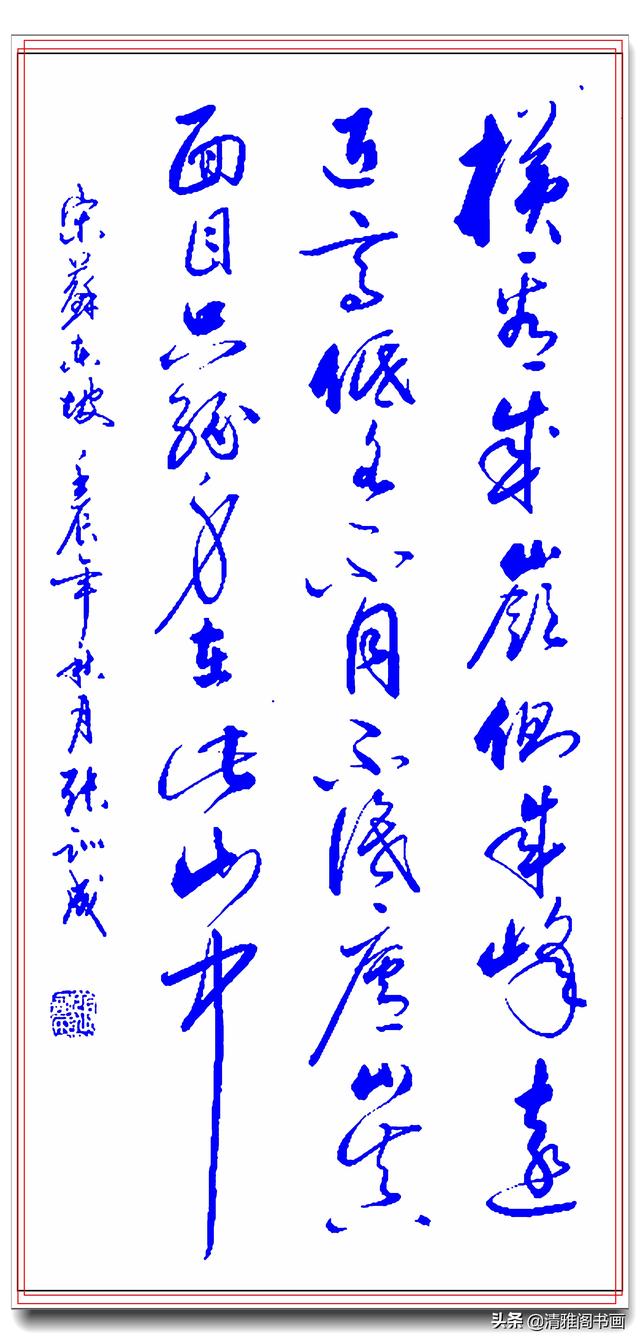 横看成嶺側成峰遠
近高低各不同不識廬山真
面目只緣身在此山中
宋蘇东坡 壬辰年秋月张训
头条 @清雅阁书画